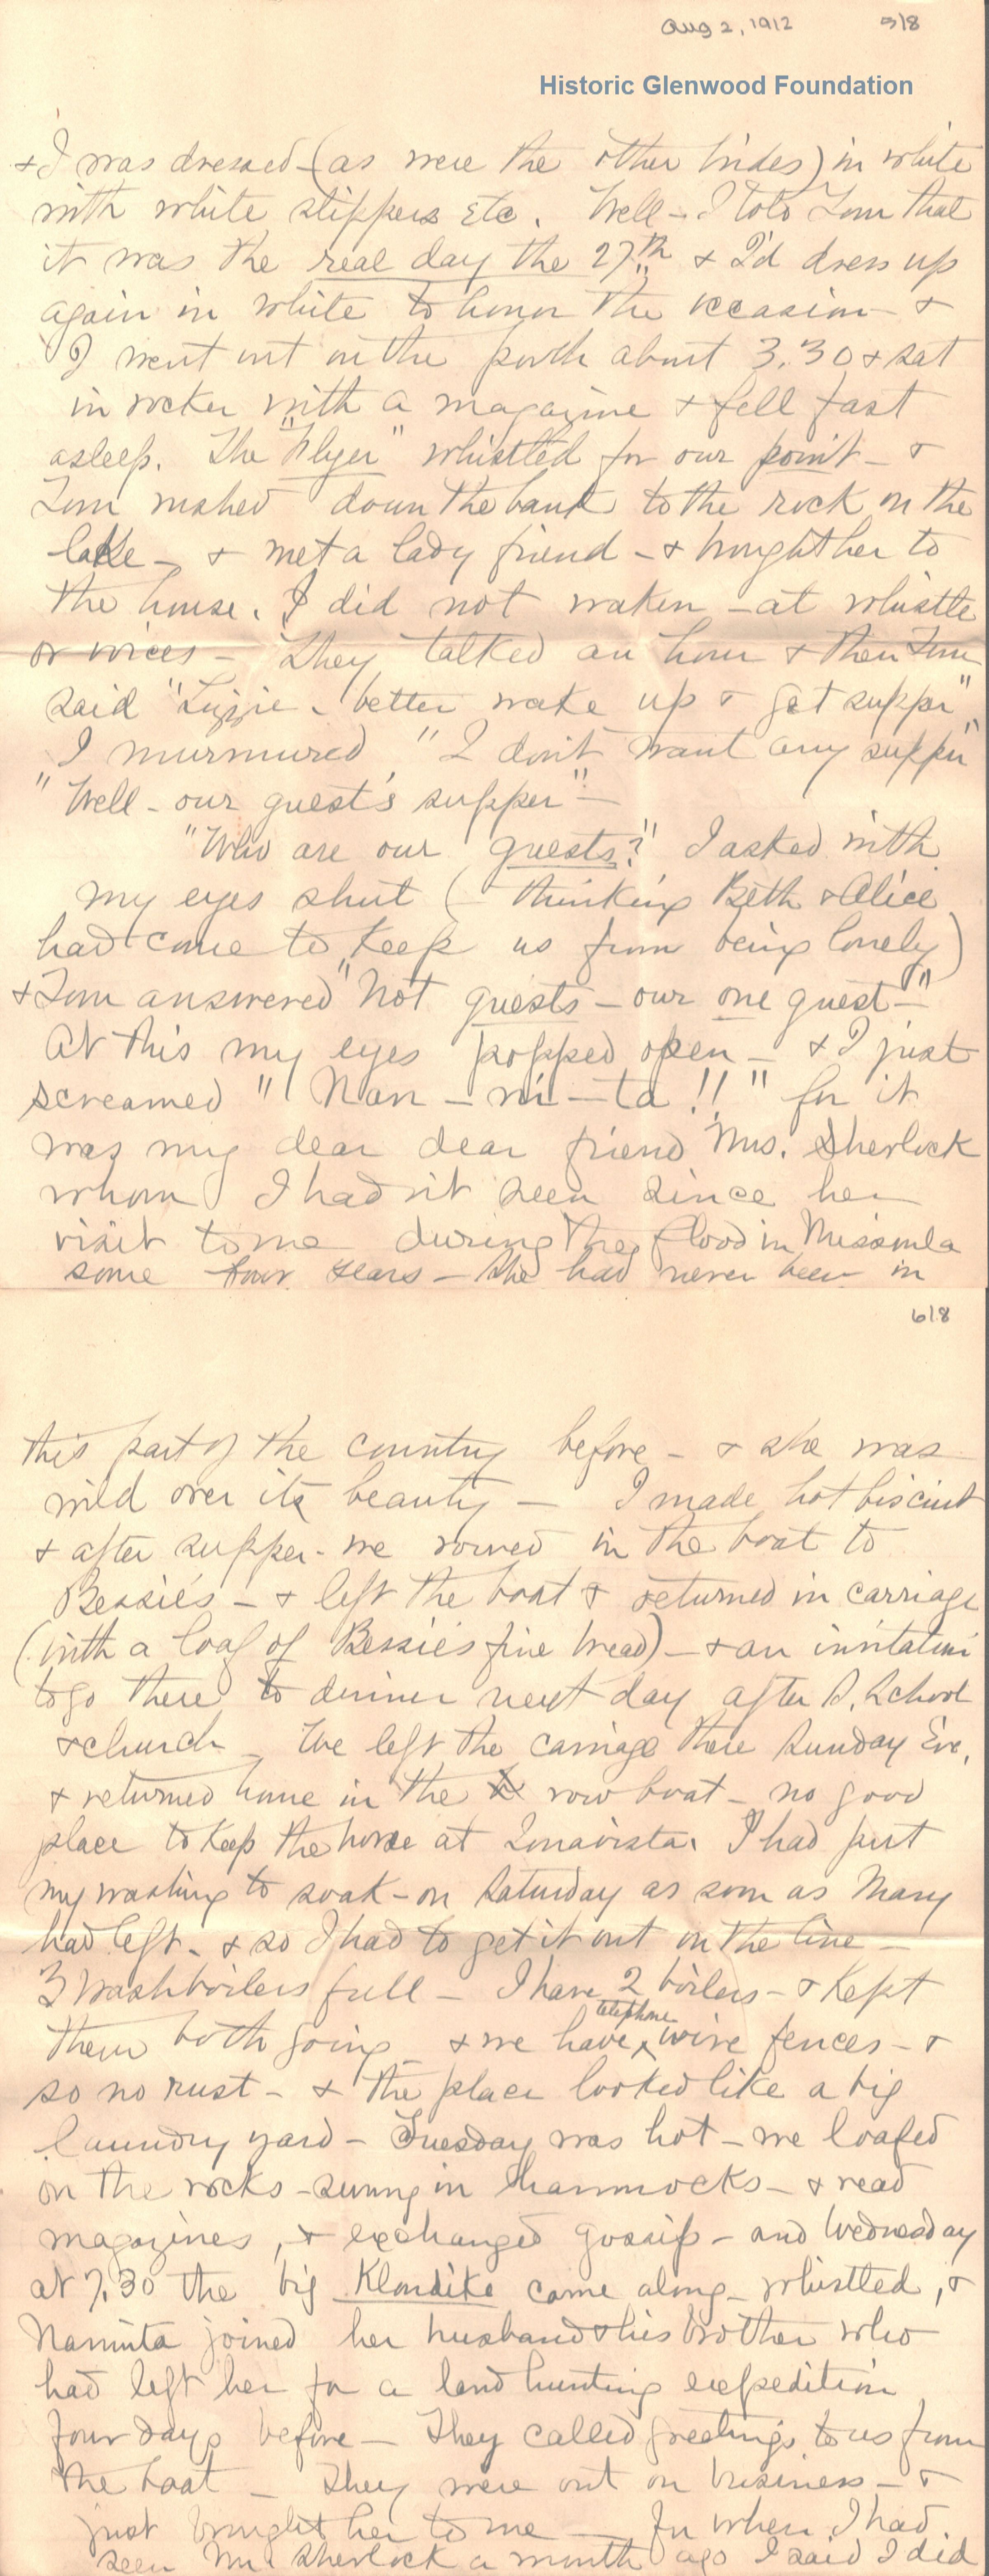 Aug 2, 1912 5/8
Historic Glenwood Foundation
& I was dressed - (as were the other brides) in white
with white slippers etc. Well - I told Tom that
it was the real day the 27th & I'd dress up
again in white to honor the occasion - &
I went out on the porch about 3.30 & sat
in rocker with a magazine & fell fast
asleep. The "Flyer" whistled for our point - &
Tom rushed down the bank to the rock on the
lake - & met a lady friend - & brought her to
the house. I did not waken - at whistle
or voices - They talked an hour & then Tom
said "Lizzie - better wake up & get supper"
I murmured "I don't want any supper"
"Well - our guest's supper" -
"Who are our guests?" I asked with
my eyes shut (thinking Beth & Alice
had come to keep us from being lonely)
& Tom answered "Not guests - our one guest -"
At this my eyes popped open - & I just
screamed "Nan - ni - ta!!" for it
was my dear dear friend Mrs. Sherlock
whom I hadn't seen since her
visit to me during the flood in Missoula
some four years - She had never been in
6/8
this part of the country before - & she was
wild over its beauty - I made hot biscuit
& after supper - we rowed in the boat to
Bessie's - & left the boat & returned in carriage
(with a loaf of Bessie's fine bread) - & an invitation
to go there to dinner next day after S. School
& church - We left the carriage there Sunday Eve,
& returned home in the row boat - no good
place to keep the horse at Lonavista. I had put
my washing to soak - on Saturday as soon as Mary
had left - & so I had to get it out on the line -
3 washboilers full - I have 2 boilers - & kept
them both going - & we have telephone wire fences - &
so no rust - & the place looked like a big
laundry yard - Tuesday was hot - we loafed
on the rocks - swung in hammocks - & read
magazines, & exchanged gossip - and Wednesday
at 7.30 the big Klondike came along - whistled, &
Nannita joined her husband & his brother who
had left her for a land hunting expedition
four days before - They called greetings to us from
the boat - They were out on business - &
just brought her to me - For when I had
seen Mr. Sherlock a month ago I said I did